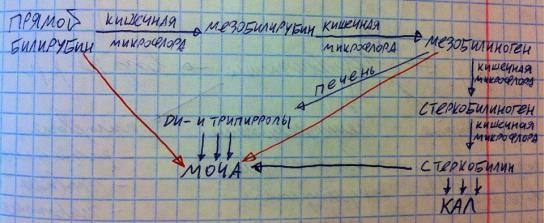 ПРЯМОЙ
БИЛИРУБИН
КИШЕЧНАЯ
МИКРОФЛОРА
МЕЗОБИЛИРУБИН
КИШЕЧНАЯ
МИКРОФЛОРА
МЕЗОБИЛИНОГЕН
КИШЕЧНАЯ
МИКРОФЛОРА
ПЕЧЕНЬ
СТЕРКОБИЛИНОГЕН
ДИ- И ТРИПИРРОЛЫ
КИШЕЧНАЯ
МИКРОФЛОРА
МОЧА
СТЕРКОБИЛИН
КАЛ